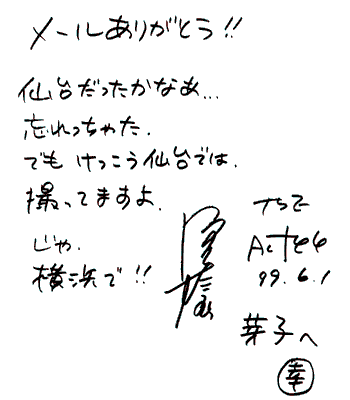 メールありがとう!!
仙台だったかなあ...
忘れっちゃた.
でも けっこう仙台では、
撮ってますよ.
じゃ.
横浜で!!
99.6.1
芽子へ
幸